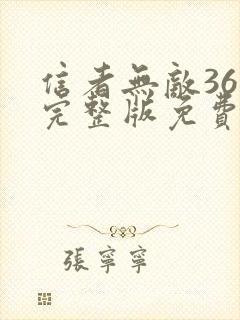 信者無敵36
完整版免費
張寧寧